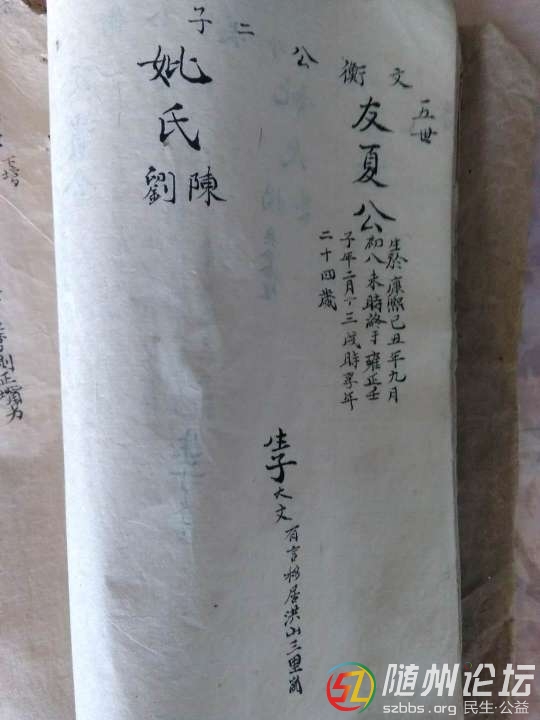 五世
文衡公二子
友夏公
生於康熙己丑年九月
初八未時終于雍正壬
子年二月十三戌時享年
二十四歲
妣氏
陳
劉
生子大文 百言移居洪山三里崗
随州论坛
szbbs.org 民生·公益